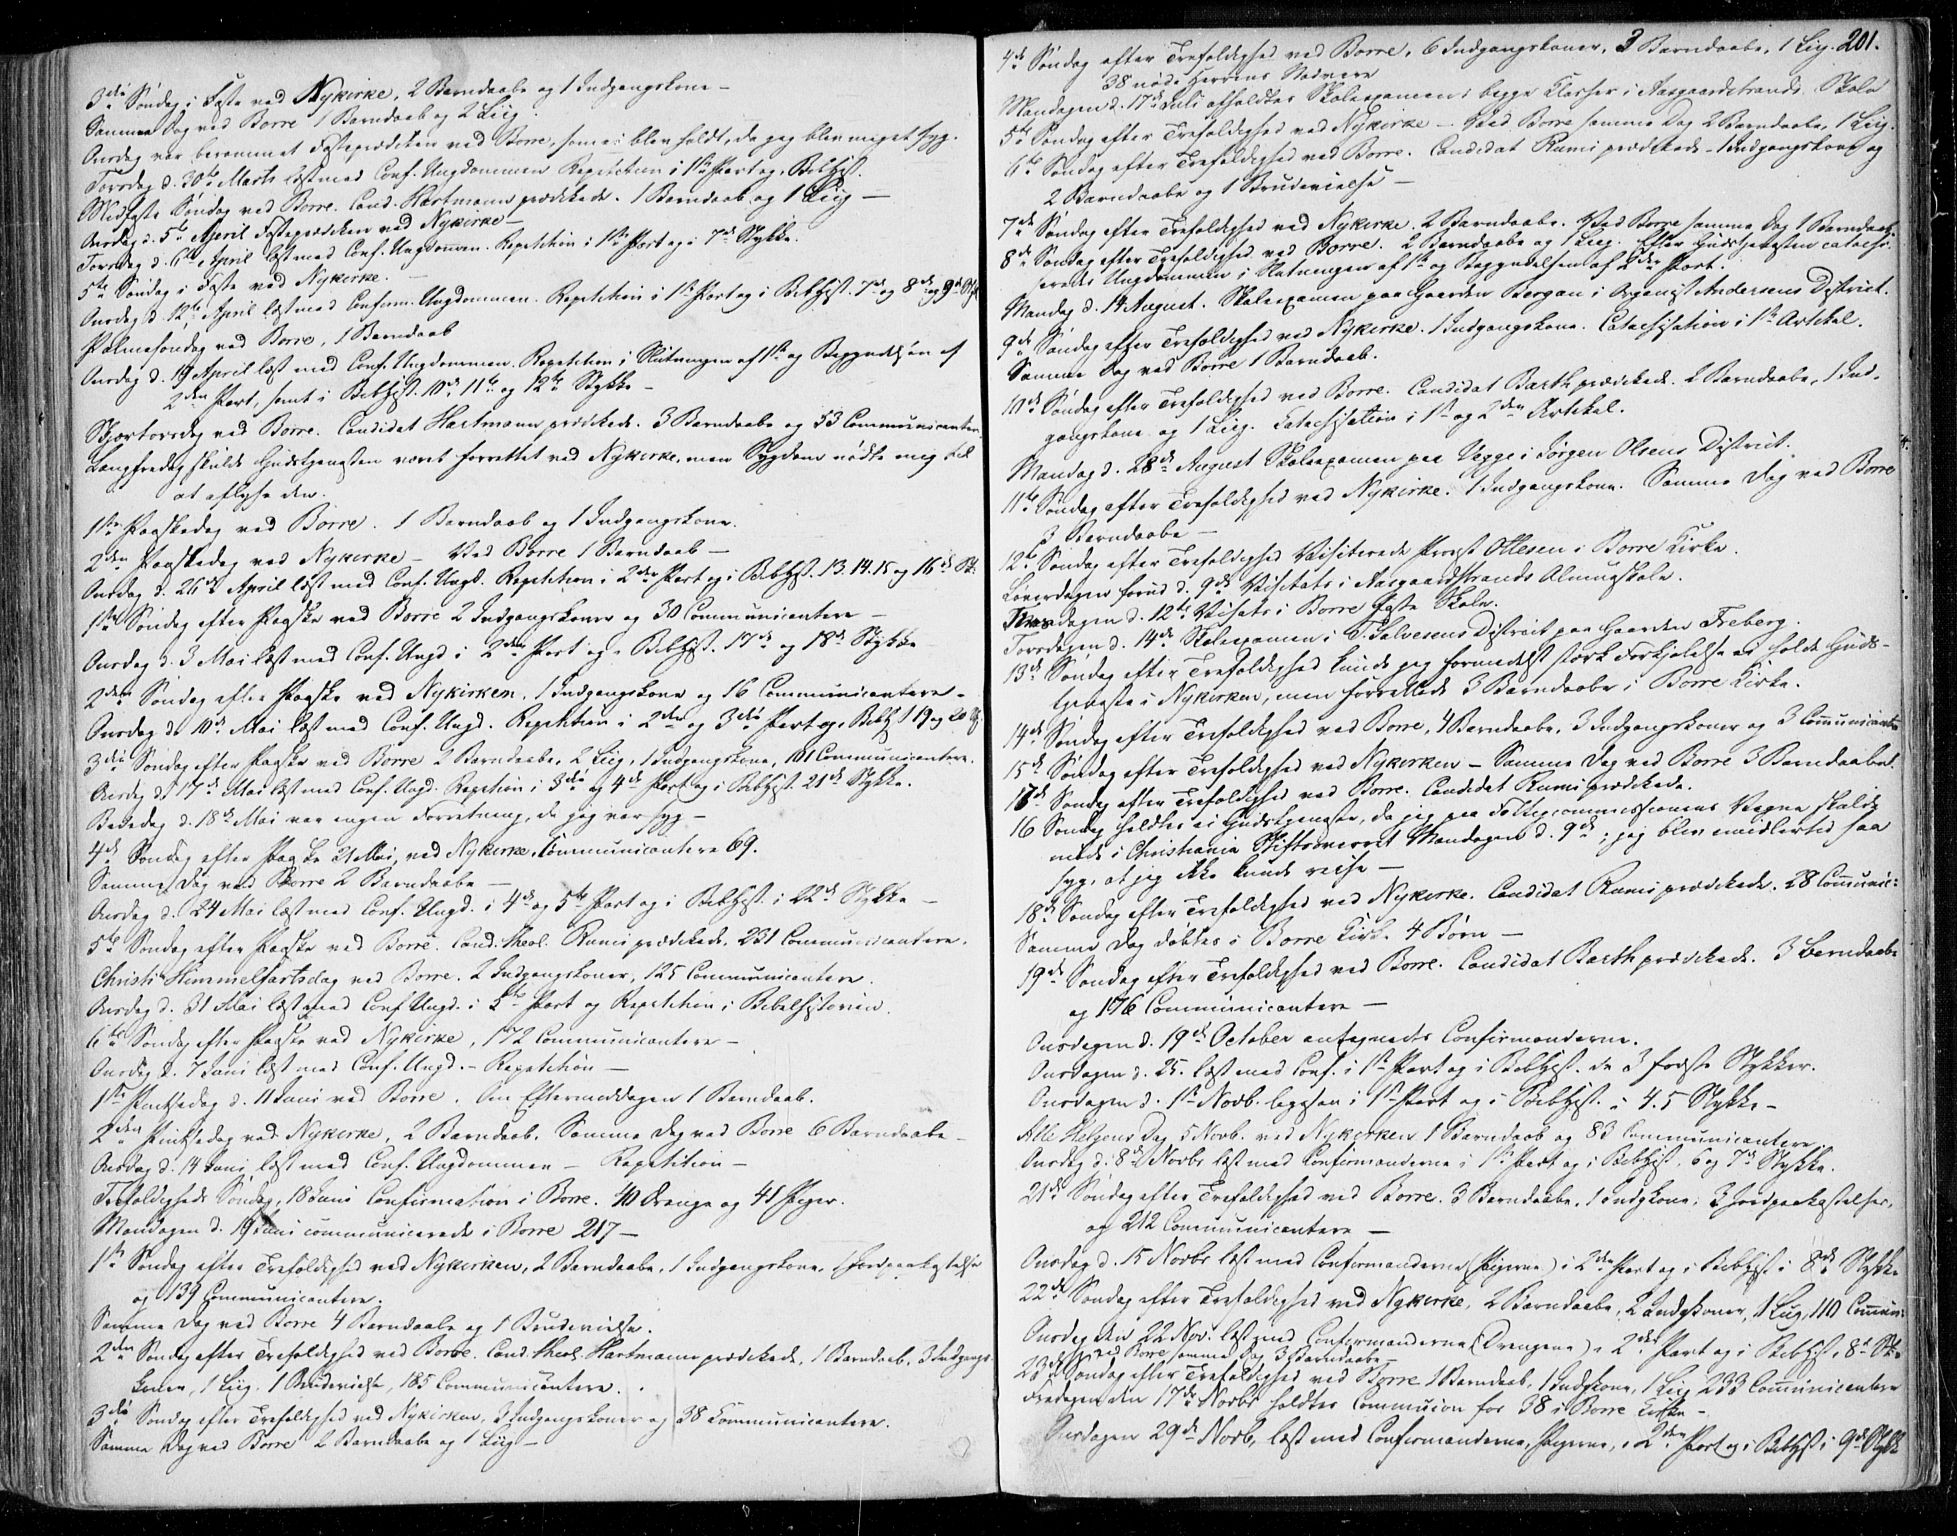 3die Søndag i Faste ved Nykirke, 2 Barndaabe og 1 Indgangskone –
Samme Dag ved Borre 1 Barndaab og 2 Liig.
Onsdag var berammet Fasteprædiken ved Borre, som ei blev holdt, da jeg blev meget syg.
Torsdag d. 30te Marts læst med Conf. Ungdommen Repetition i 1ste Part og i Bibhist.
Midfaste Søndag ved Borre. Cand. Hartmann prædikede. 1 Barndaab og 1 Liig –
Onsdag d. 5te April Fasteprædiken ved Nykirke –
Torsdag d. 6te April læst med Conf. Ungdommen. Repetition i 1ste Part og i 7de Stykke.
5te Søndag i Faste ved Nykirke. –
Onsdag d. 12te April læst med Confirm. Ungdommen. Repetition i 1ste Part og i Bibhist. 7de og 8de og 9de St.
Palmesøndag ved Borre, 1 Barndaab
Onsdag d. 19 April læst med Conf. Ungdommen. Repetition i Slutningen af 1ste og Begyndelsen af
2den Part, samt i Bibhist. 10de, 11te og 12te Stykke –
Skjærtorsdag ved Borre. Candidat Hartmann prædikede. 3 Barndaabe og 53 Communicanter.
Langfredag skulde Gudstjenesten været forrettet ved Nykirke, men Sygdom nødte mig til
at aflyse den.
1ste Paaskedag ved Borre. 1 Barndaab og 1 Indgangskone.
2den Paaskedag ved Nykirke – Ved Borre 1 Barndaab –
Onsdag d. 26de April læst med Conf. Ungd. Repetition i 2den Part og i Bibhist. 13. 14. 15 og 16de St.
1ste Søndag efter Paaske ved Borre 2 Indgangskoner og 30 Communicantere –
Onsdag d. 3 Mai læst med Conf. Ungd i 2den Part og i Bibhist. 17de og 18de Stykke
2den Søndag efter Paaske ved Nykirken. 1 Indgangskone og 16 Communicantere –
Onsdag d. 10de Mai læst med Conf. Ungd. Repetition i 2den og 3die Part og i Bibhist 19 og 20 St.
3die Søndag efter Paaske ved Borre 2 Barndaabe, 2 Liig, 1 Indgangskone, 101 Communicantere.
Onsdag d. 17de Mai læst med Conf. Ungd. Repetition i 3die og 4de Part og i Bibhist. 21de Stykke.
Bededag d. 18de Mai var ingen Forretning, da jeg var syg –
4de Søndag efter Paaske 21 Mai, ved Nykirke. Communicantere 69.
Samme Dag ved Borre 2 Barndaabe –
Onsdag d. 24 Mai læst med Conf. Ungd. i 4de og 5te Part og i Bibhist. i 22de Stykke –
5te Søndag efter Paaske ved Borre. Cand. theol. Rumi prædikede. 231 Communicantere.
Christi Himmelfartsdag ved Borre. 2 Indgangskoner, 125 Communicantere.
Onsdag d. 31 Mai læst med Conf Ungd. i 5te Part og Repetition i Bibelhistorien.
6te Søndag efter Paaske ved Nykirke, 172 Communicantere –
Onsdag d. 7 Juni læst med Conf. Ungd. – Repetition –
1ste Pintsedag d. 11 Juni ved Borre. Om Eftermiddagen 1 Barndaab.
2den Pintsedag ved Nykirke, 2 Barndaab. Samme Dag ved Borre 6 Barndaabe –
Onsdag d. 14 Juni læst med Conf. Ungdommen – Repetition –
Trefoldigheds Søndag, 18 Juni Confirmation i Borre. 40 Drenge og 41 Piger.
Mandagen d. 19 Juni communicerede i Borre 217 –
1ste Søndag efter Trefoldighed ved Nykirken, 2 Barndaabe, 1 Indgangskone, 1 Jordpaakastelse
og 139 Communicantere.
Samme Dag ved Borre 4 Barndaabe og 1 Brudevielse.
2den Søndag efter Trefoldighed ved Borre. Cand. theol. Hartmann prædikede, 1 Barndaab, 3 Indgangs-
koner, 1 Liig. 1 Brudevielse, 185 Communicantere.
3die Søndag efter Trefoldighed ved Nykirken, 3 Indgangskoner og 38 Communicantere.
Samme Dag ved Borre 2 Barndaabe og 1 Liig –
4de Søndag efter Trefoldighed ved Borre, 6 Indgangskoner, 3 Barndaabe, 1 Liig. 201.
38 nøde Herrens Nadvere
Mandagen d. 17de Juli afholdtes Skoleexamen i begge Classer i Aasgaardstrands Skole
5te Søndag efter Trefoldighed ved Nykirke – Ved Borre samme Dag 2 Barndaabe, 1 Liig.
6te Søndag efter Trefoldighed ved Borre. Candidat Rumi prædikede – 1 Indgangskone og
2 Barndaabe og 1 Brudevielse –
7de Søndag efter Trefoldighed ved Nykirke. 2 Barndaabe. Ved Borre samme Dag 1 Barndaab.
8de Søndag efter Trefoldighed ved Borre. 2 Barndaabe og 1 Liig. Efter Gudstjenesten catechi-
serede Ungdommen i Slutningen af 1ste og Begyndelsen af 2den Part.
Mandag d. 14 August. Skoleexamen paa Gaarden Bergan i Organist Andersens District.
9de Søndag efter Trefoldighed ved Nykirke. 1 Indgangskone. Catechisation i 1ste Artikel.
Samme Dag ved Borre 1 Barndaab.
10de Søndag efter Trefoldighed ved Borre. Candidat Barth prædikede. 2 Barndaabe, 1 Ind-
gangskone og 1 Liig. Catechisation i 1ste og 2den Artikel.
Mandag d. 28de August Skoleexamen paa Vegge i Jørgen Olsens District.
11te Søndag efter Trefoldighed ved Nykirke. 1 Indgangskone. Samme Dag ved Borre
3 Barndaabe –
12te Søndag efter Trefoldighed Visiterede Provst Ottesen i Borre Kirke.
Løverdagen forud d. 9de Visitats i Aasgaardstrands Almueskole.
Tirsdagen d. 12te Visitats i Borre faste Skole.
Torsdagen d. 14de Skoleexamen i T. Salvesens District paa Gaarden Freberg.
13de Søndag efter Trefoldighed kunde jeg formedelst stærk Forkjølelse ei holde Guds-
tjeneste i Nykirken, men forrettede 3 Barndaabe i Borre Kirke.
14de Søndag efter Trefoldighed ved Borre, 4 Barndaabe, 3 Indgangskoner og 3 Communicanter
15de Søndag efter Trefoldighed ved Nykirken – Samme Dag ved Borre 3 Barndaabe.
17de Søndag efter Trefoldighed ved Borre. Candidat Rumi prædikede.
16 Søndag holdtes ei Gudstjeneste, da jeg paa Fattigcommissionens Vegne skulde
møde i Christiania Stiftsoverret Mandagen d. 9de; jeg blev imidlertid saa
syg, at jeg ikke kunde reise –
18de Søndag efter Trefoldighed ved Nykirke. Candidat Rumi prædikede. 28 Communic:
Samme Dag døbtes i Borre Kirke 4 Børn –
19de Søndag efter Trefoldighed ved Borre. Candidat Barth prædikede. 3 Barndaabe
og 176 Communicantere –
Onsdagen d. 19de October antegnedes Confirmanderne.
Onsdagen d. 25. læst med Conf. i 1ste Part og i Bibhist. de 3 første Stykker.
Onsdagen d. 1ste Novb. ligesaa i 1ste Part og i Bibhist. i 4. 5 Stykke –
Alle Helgens Dag 5 Novb. ved Nykirken 1 Barndaab og 83 Communicantere.
Onsdag d. 8de Novbr læst med Confirmanderne i 1ste Part og i Bibhist. 6 og 7de Stykke.
21de Søndag efter Trefoldighed ved Borre. 3 Barndaabe, 1 Indgkone, 3 Jordpaakastelser,
og 212 Communicantere –
Onsdag d. 15 Novbr læst med Confirmanderne (Pigerne) i 2den Part og i Bibhist. i 8de Stykke
22de Søndag efter Trefoldighed ved Nykirke, 2 Barndaabe, 2 Indgkoner, 1 Liig, 110 Commun:
Onsdag den 22 Nov. læst med Confirmanderne (Drengene) i 2den Part og i Bibhist. 8de St.
ved Borre samme Dag 3 Barndaabe –
23de Søndag efter Trefoldighed ved Borre 1 Barndaab, 1 Indgkone, 1 Liig 233 Communicantere
Fredagen den 17de Novbr holdtes Communion for 38 i Borre Kirke –
Onsdagen 29de Novb. læst med Confirmanderne, Pigerne, i 2den Part og i Bibhist i 9de Stykke